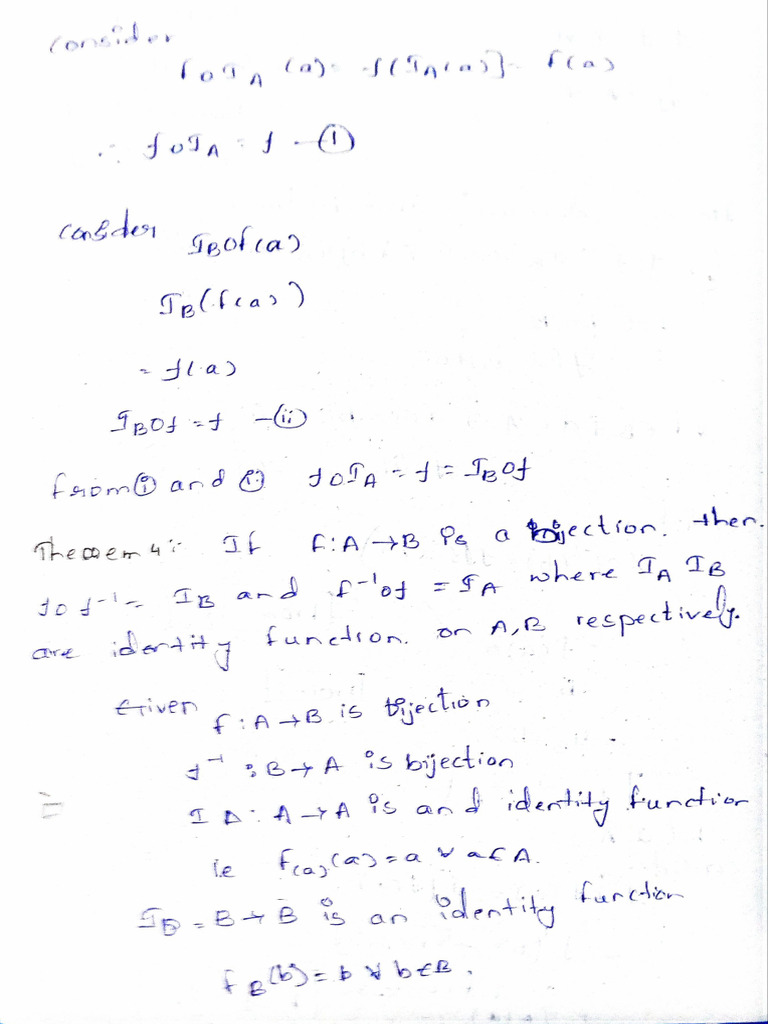 consider
foIA (a) = f[IA(a)] = f(a)
∴ foIA = f - (i)
consider IBof(a)
IB(f(a))
= f(a)
IBof = f - (ii)
from (i) and (ii) foIA = f = IBof
Theorem 4:- If f: A → B is a bijection. then.
fof⁻¹ = IB and f⁻¹of = IA where IA IB
are identity function. on A,B respectively.
Given f: A → B is bijection
f⁻¹ : B → A is bijection
IA: A → A is and identity function
ie f(a)(a) = a ∀ a ∈ A.
IB = B → B is an identity function
fB(b) = b ∀ b ∈ B.